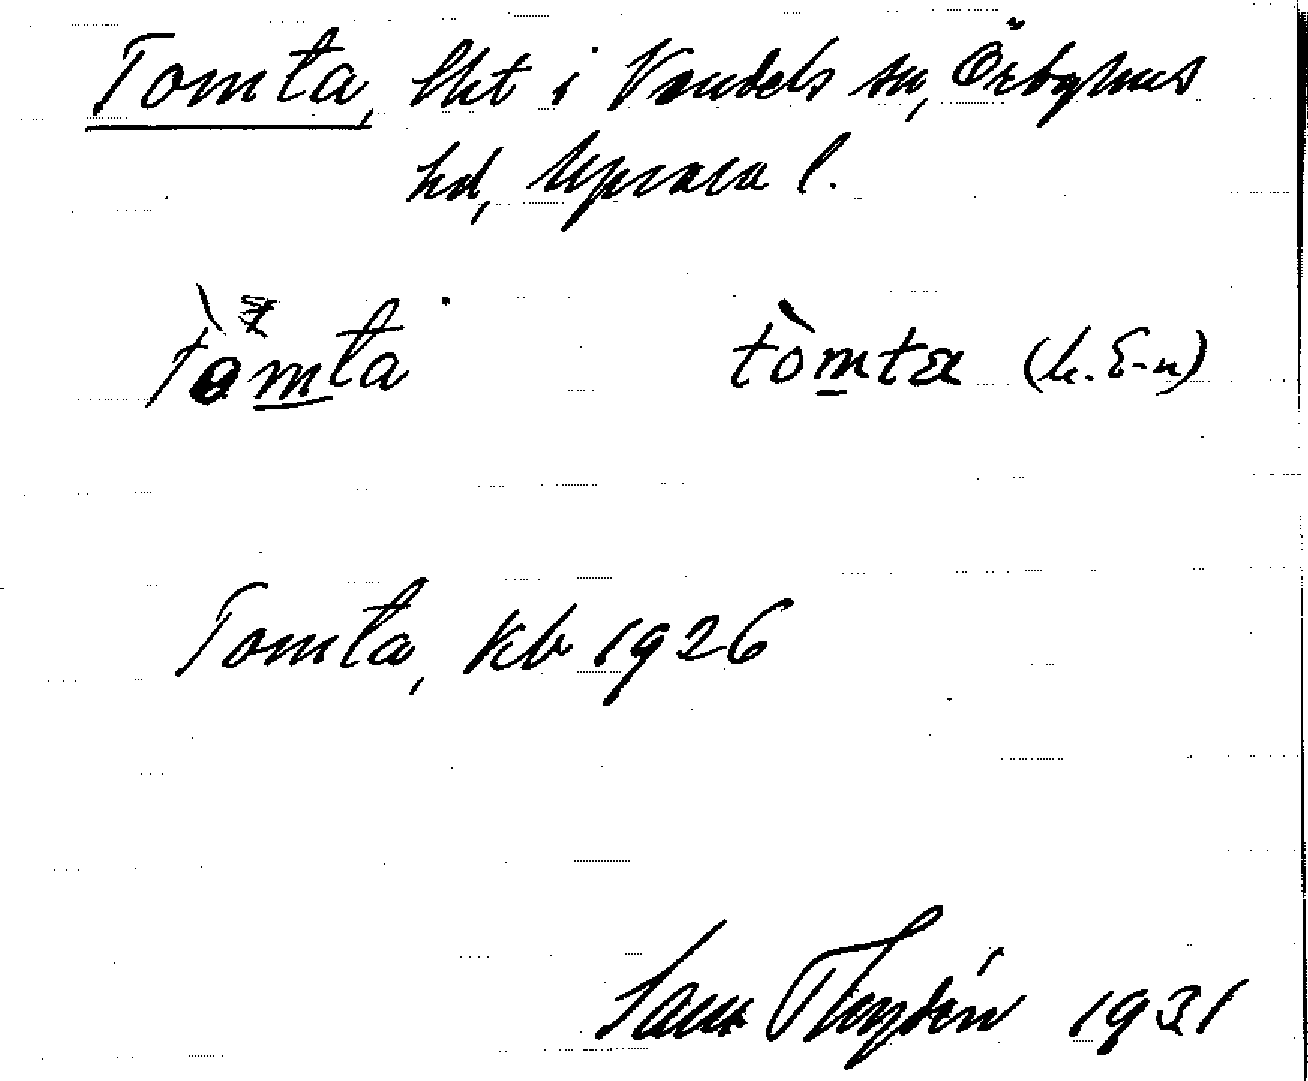 Tomta, lht i Vendels sn, Örbyhus
hd, Uppsala l.
tòmta tòmtæ (h. E-n)
Tomta, kb 1926
1931